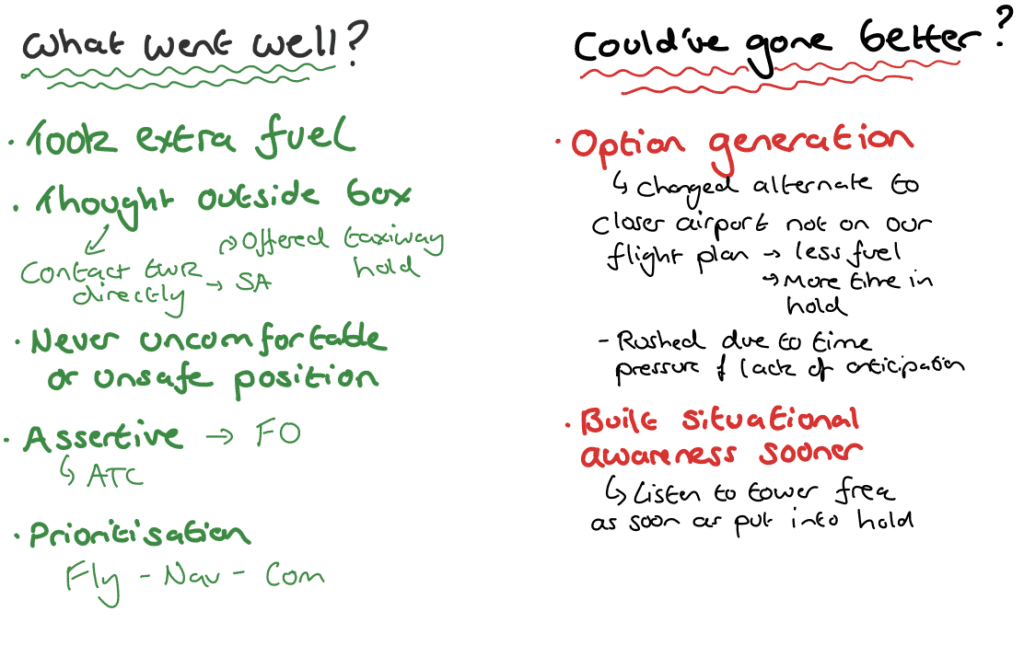 What went well?
• Took extra fuel
• Thought outside box
↙ Contact twr directly → SA
→ Offered taxiway hold
• Never uncomfortable
or unsafe position
• Assertive → FO
↳ ATC
• Prioritisation
Fly - Nav - Com
Could've gone better?
• Option generation
↳ Changed alternate to
closer airport not on our
flight plan → less fuel
→ More time in
hold
- Rushed due to time
pressure & lack of anticipation
• Built situational
awareness sooner
↳ Listen to tower freq
as soon as put into hold